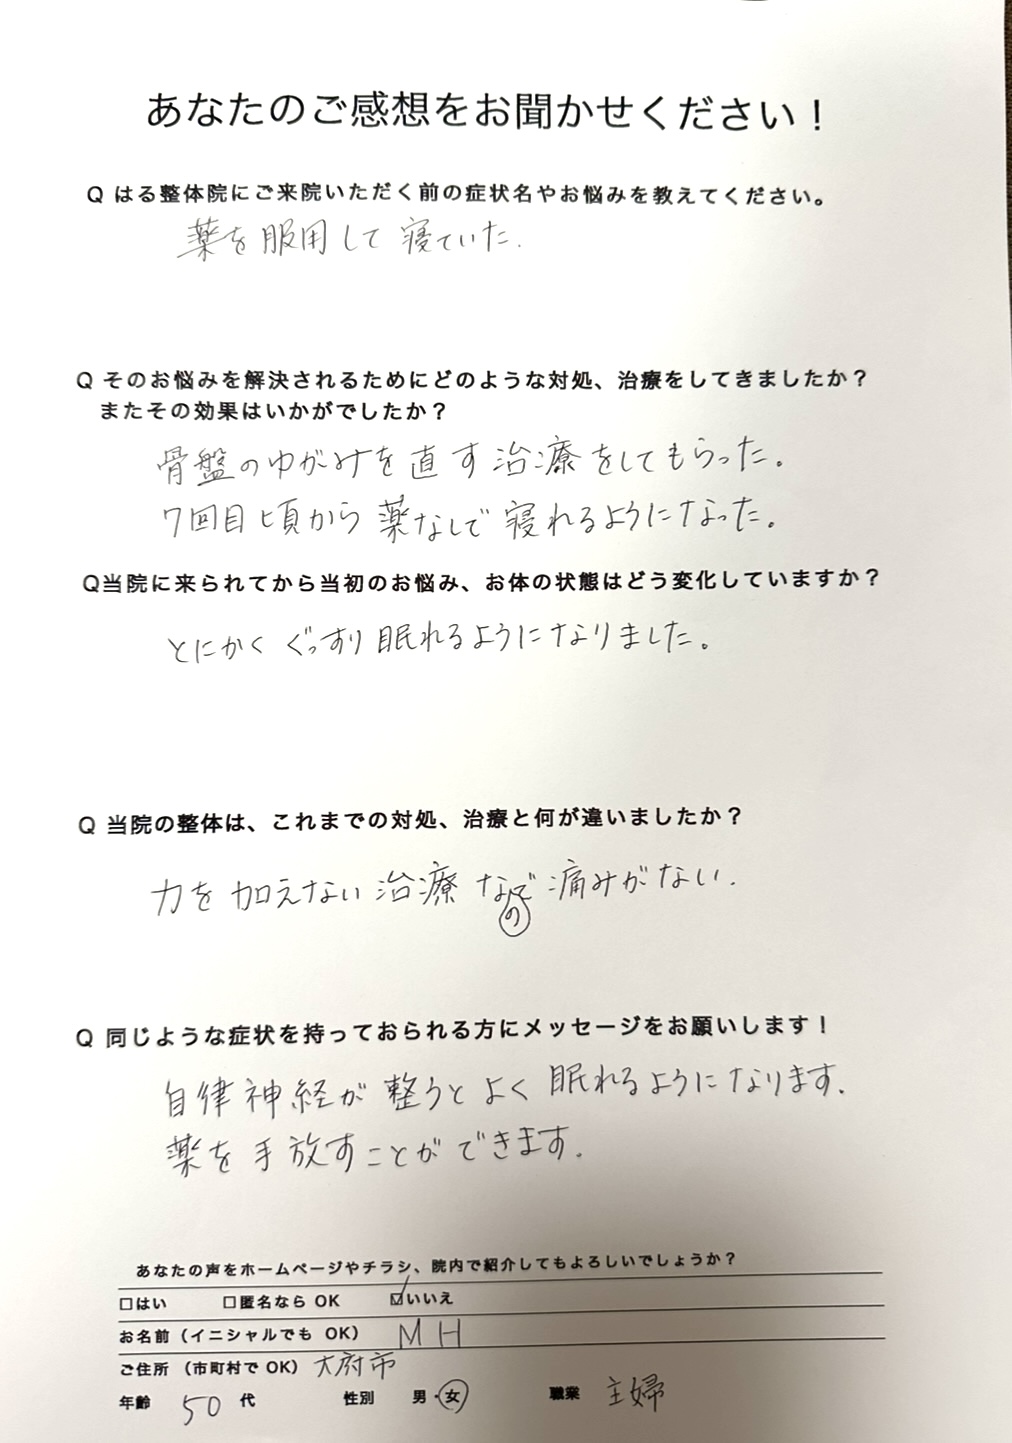 あなたのご感想をお聞かせください！
Q はる整体院にご来院いただく前の症状名やお悩みを教えてください。
薬を服用して寝ていた.
Q そのお悩みを解決されるためにどのような対処、治療をしてきましたか？
またその効果はいかがでしたか？
骨盤のゆがみを直す治療をしてもらった。
7回目頃から薬なしで寝れるようになった。
Q当院に来られてから当初のお悩み、お体の状態はどう変化していますか？
とにかくぐっすり眠れるようになりました。
Q 当院の整体は、これまでの対処、治療と何が違いましたか？
力を加えない治療なので痛みがない.
Q 同じような症状を持っておられる方にメッセージをお願いします！
自律神経が整うとよく眠れるようになります.
薬を手放すことができます.
あなたの声をホームページやチラシ、院内で紹介してもよろしいでしょうか？
□はい □匿名なら OK ☑いいえ
お名前（イニシャルでも OK） M H
ご住所（市町村で OK） 大府市
年齢 50 代 性別 男・女 職業 主婦